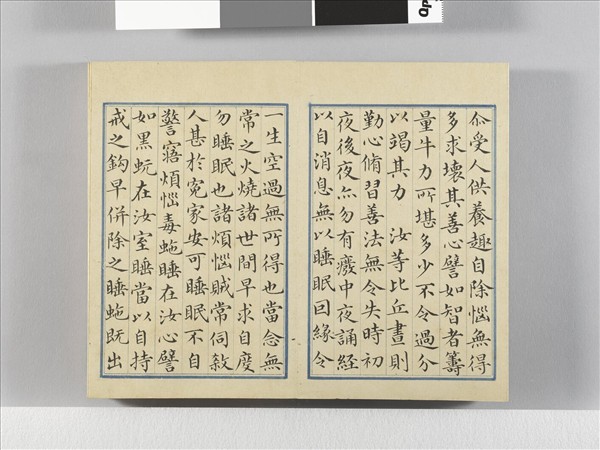 尒受人供養趣自除惱無得
多求壞其善心譬如智者籌
量牛力所堪多少不令過分
以竭其力　汝等比丘晝則
勤心脩習善法無令失時初
夜後夜亦勿有癈中夜誦経
以自消息無以睡眠因緣令
一生空過無所得也當念無
常之火燒諸世間早求自度
勿睡眠也諸煩惱賊常伺殺
人甚於冤家安可睡眠不自
警寤煩惱毒虵睡在汝心譬
如黒蚖在汝室睡當以自持
戒之鈎早併除之睡虵既出